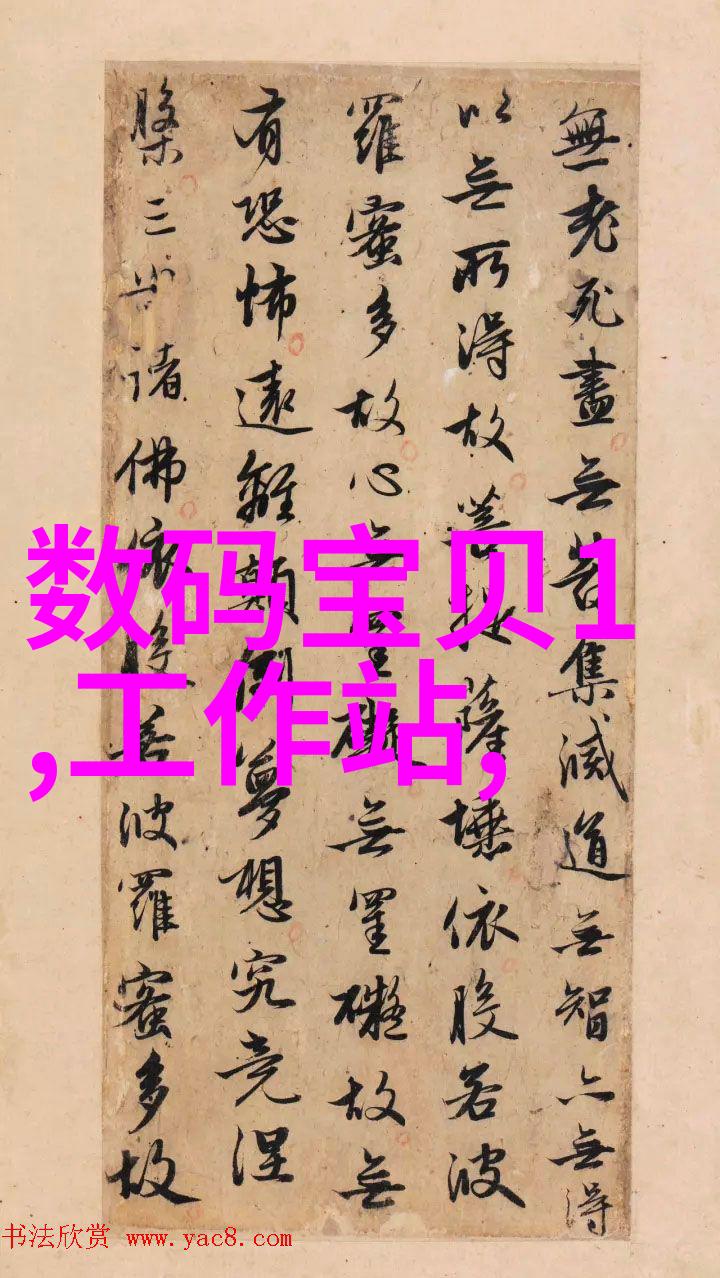 無老死盡無苦集滅道無智亦無得
以無所得故菩提薩埵依般若波
羅蜜多故心無罣礙無罣礙故無
有恐怖遠離顛倒夢想究竟涅
槃三世諸佛依般若波羅蜜多故
数码宝贝1
,工作站,
书法欣赏 www.yac8.com